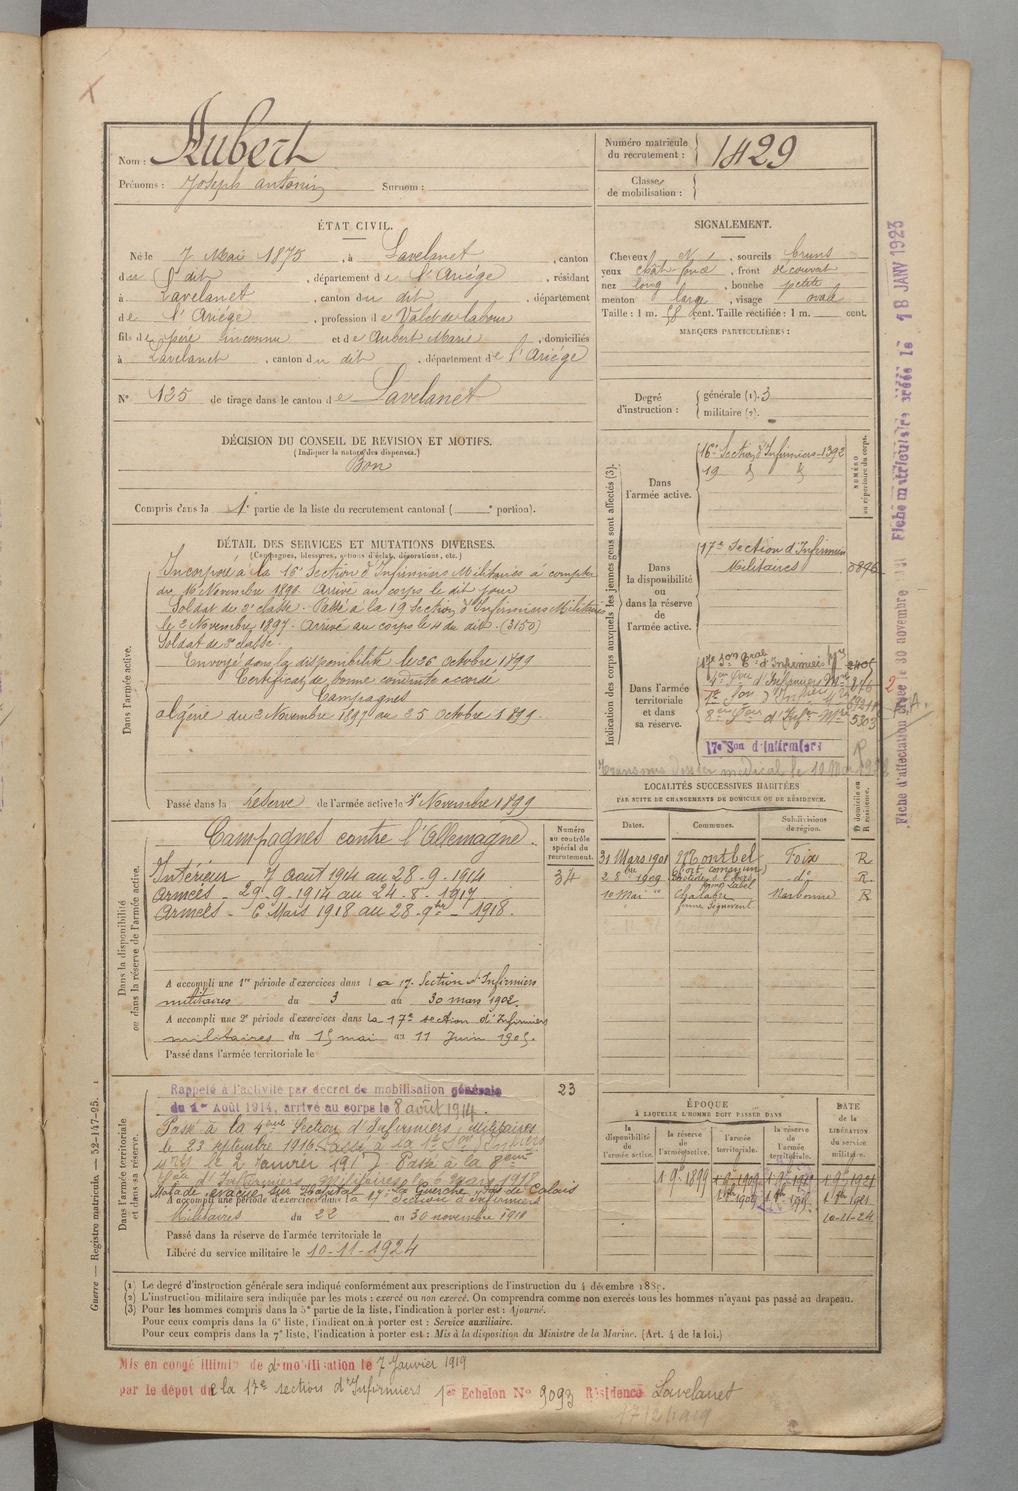 Nom : Aubert
Prénoms : Joseph Antonin Surnom :
Numéro matricule du recrutement : 1429
Classe de mobilisation :
ÉTAT CIVIL.
Né le 7 Mai 1875, à Lavelanet, canton
du dit, département de l'Ariége, résidant
à Lavelanet, canton du dit, département
de l'Ariége, profession de Valet de labour
fils de père inconnu et de Aubert Marie, domiciliés
à Lavelanet, canton du dit, département de l'Ariége
N° 135 de tirage dans le canton de Lavelanet
SIGNALEMENT.
Cheveux N, sourcils bruns
yeux chât foncé, front découvert
nez long, bouche petite
menton large, visage ovale
Taille : 1 m. 58 cent. Taille rectifiée : 1 m. cent.
MARQUES PARTICULIÈRES :
Degré d'instruction : générale (1). 3
militaire (2).
DÉCISION DU CONSEIL DE REVISION ET MOTIFS.
(Indiquer la nature des dispenses.)
Bon
Compris dans la 1e partie de la liste du recrutement cantonal ( e portion).
DÉTAIL DES SERVICES ET MUTATIONS DIVERSES.
(Campagnes, blessures, actions d'éclat, décorations, etc.)
Dans l'armée active.
Incorporé à la 16e Section d'Infirmiers Militaires à compter
du 16 Novembre 1896. Arrivé au corps le dit jour
Soldat de 2e classe. Passé à la 19 Section d'Infirmiers Militaires
le 2 Novembre 1897. Arrivé au corps le 4 du dit. (3150)
Soldat de 2e classe.
Envoyé dans la disponibilité le 26 Octobre 1899
Certificat de bonne conduite accordé
Campagnes
Algérie du 2 Novembre 1897 au 25 Octobre 1899.
Passé dans la réserve de l'armée active le 1er Novembre 1899
Indication des corps auxquels les jeunes gens sont affectés (3).
NUMÉRO au répertoire du corps.
Dans l'armée active.
16e Section d'Infirmiers 1392
19 d d
Dans la disponibilité ou dans la réserve de l'armée active.
17e Section d'Infirmiers
Militaires 3896
Dans l'armée territoriale et dans sa réserve.
17e Son d'infirmiers
Transmis dossier medical le 10 Mai
LOCALITÉS SUCCESSIVES HABITÉES
PAR SUITE DE CHANGEMENTS DE DOMICILE OU DE RÉSIDENCE.
Dates. Communes. Subdivisions de région. D domicile ou R résidence.
31 Mars 1901 Montbel Foix R
1909 do R
10 Mai Chalabre Narbonne R
Dans la disponibilité ou dans la réserve de l'armée active.
Campagnes contre l'Allemagne.
Numéro au contrôle spécial du recrutement.
34
Intérieur 7 août 1914 au 28-9-1914
Armées - 29-9-1914 au 24-8-1917
Armées - 6 Mars 1918 au 28-9bre-1918.
A accompli une 1re période d'exercices dans la 17e Section d'Infirmiers
militaires du 3 au 30 mars 1902.
A accompli une 2e période d'exercices dans la 17e section d'Infirmiers
militaires du 15 mai au 11 Juin 1905.
Passé dans l'armée territoriale le
Dans l'armée territoriale et dans sa réserve.
23
Rappelé à l'activité par décret de mobilisation générale
du 1er Août 1914, arrivé au corps le 8 août 1914.
Passé à la 4ème Section d'Infirmiers militaires
le 23 septembre 1916. Passé à la 1e Son d'Infirmiers
le 2 Janvier 1917. Passé à la 8ème
Son d'Infirmiers Militaires le 6 mars 1918
Malade évacué sur Hôpital La Guerche, Pas de Calais
A accompli une période d'exercices dans la 17e Section d'Infirmiers
Militaires du 22 au 30 novembre 1910
Passé dans la réserve de l'armée territoriale le
Libéré du service militaire le 10-11-1924
ÉPOQUE
À LAQUELLE L'HOMME DOIT PASSER DANS
DATE DE LA LIBÉRATION du service militaire.
la disponibilité de l'armée active. la réserve de l'armée active. l'armée territoriale. la réserve de l'armée territoriale.
1 9bre 1899
10-11-24
(1) Le degré d'instruction générale sera indiqué conformément aux prescriptions de l'instruction du 4 décembre 1889.
(2) L'instruction militaire sera indiquée par les mots : exercé ou non exercé. On comprendra comme non exercés tous les hommes n'ayant pas passé au drapeau.
(3) Pour les hommes compris dans la 5e partie de la liste, l'indication à porter est : Ajourné.
Pour ceux compris dans la 6e liste, l'indication à porter est : Service auxiliaire.
Pour ceux compris dans la 7e liste, l'indication à porter est : Mis à la disposition du Ministre de la Marine. (Art. 4 de la loi.)
Mis en congé illimité de démobilisation le 7 Janvier 1919
par le dépôt de la 17e section d'Infirmiers 1er Echelon N° 9093 Résidence Lavelanet
Guerre — Registre matricule — 52-147-95.
Fiche matriculaire créée le 18 JANV 1923
Fiche d'affectation créée le 30 novembre